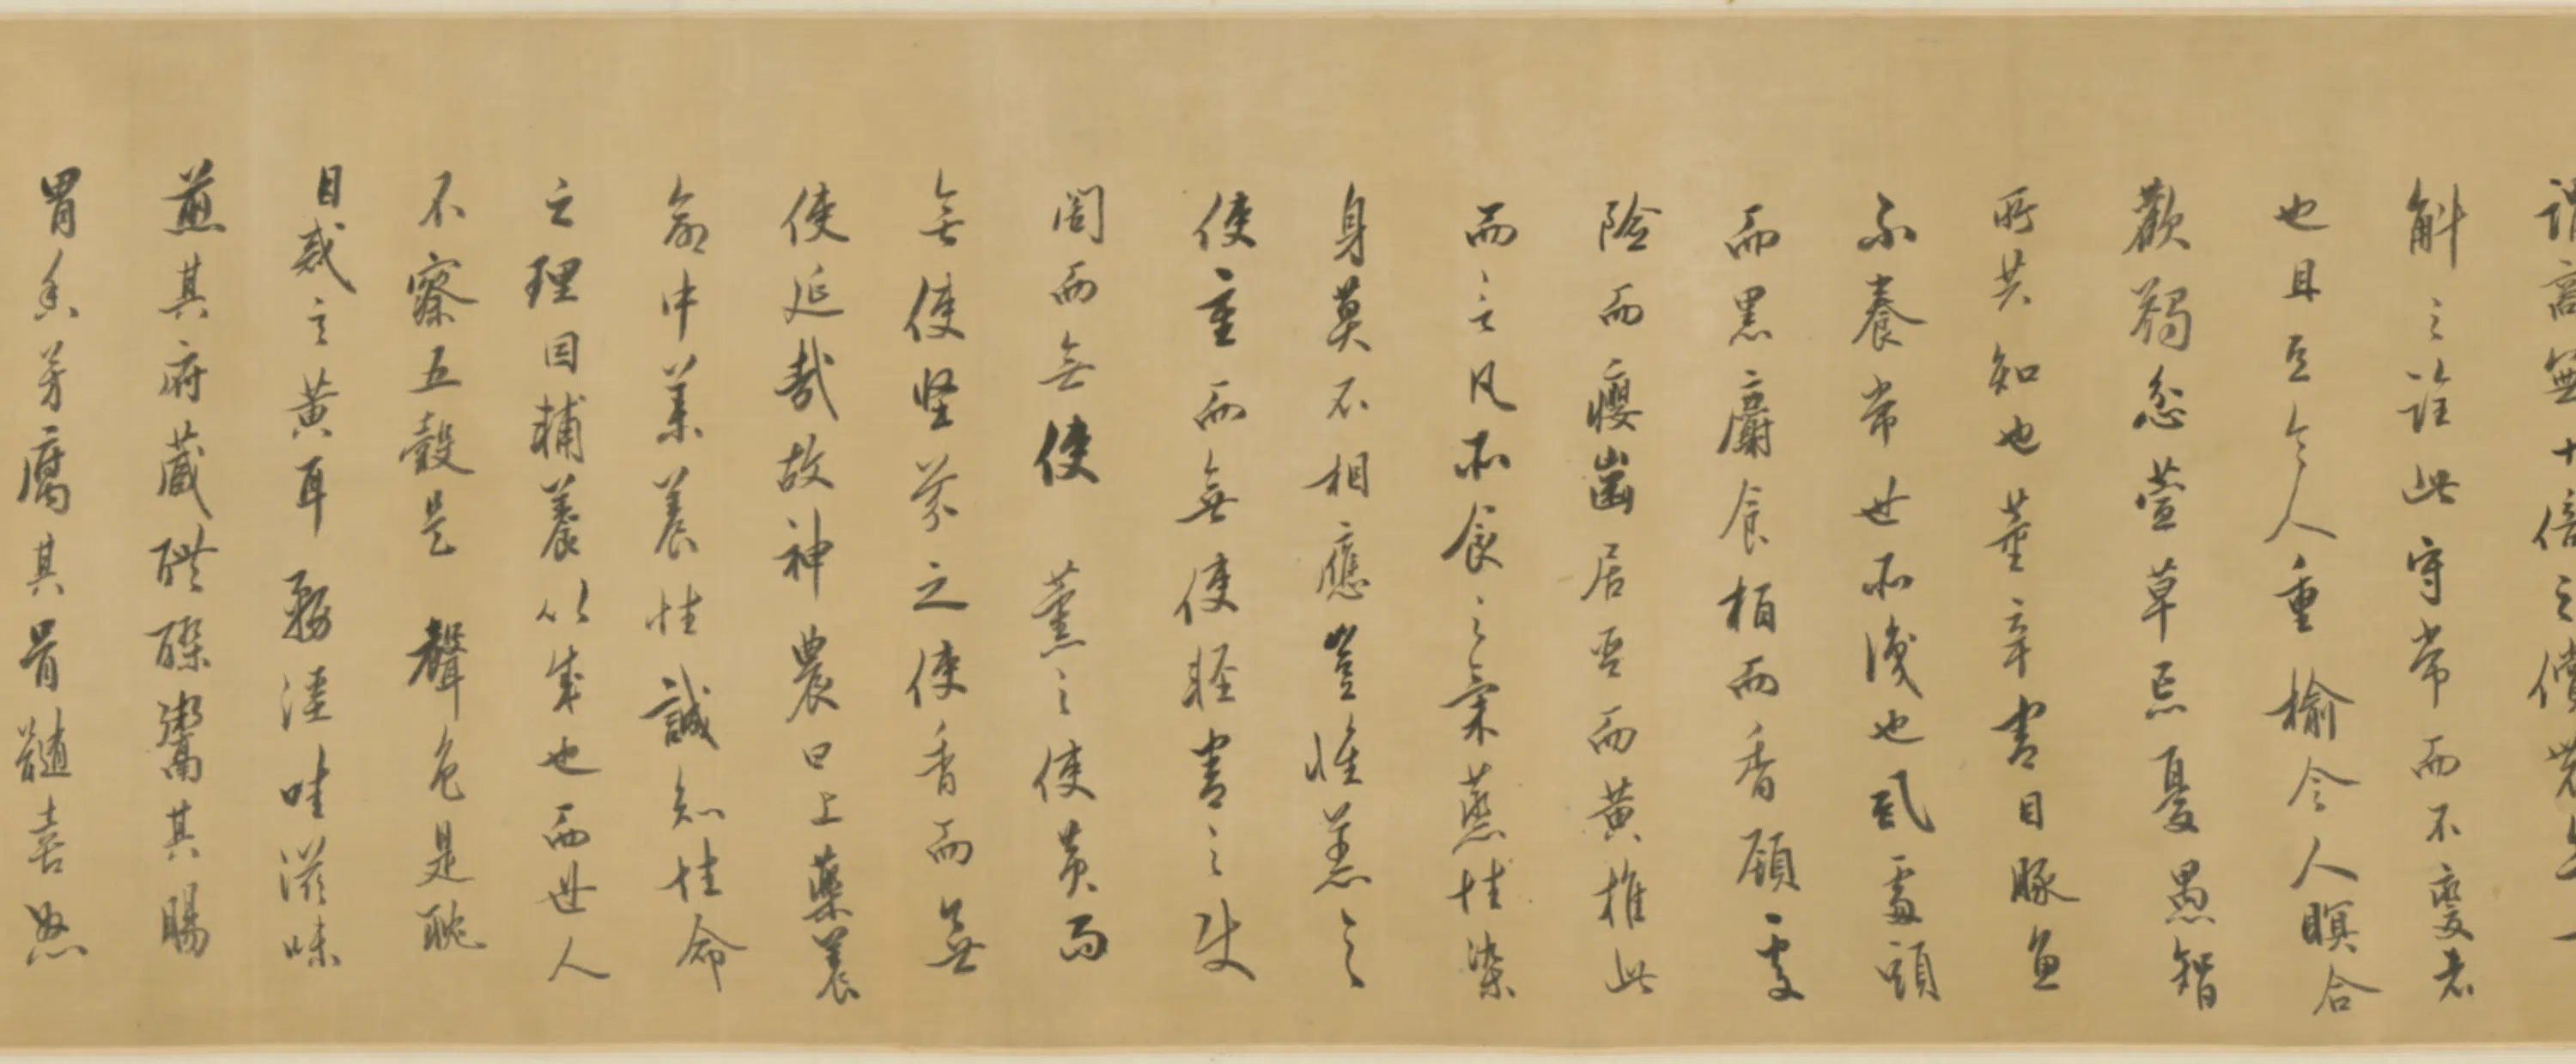 謂商無十倍之價農無一
斛之望此守常而不變者
也且豆令人重榆令人瞑合
歡蠲忿萱草忘憂愚智
所共知也薰辛害目豚魚
不養常世所識也虱處頭
而黑麝食柏而香頸處
險而癭齒居晉而黃推此
而言凡所食之氣蒸性染
身莫不相應豈惟蒸之
使重而無使輕害之使
闇而無使 薰之使黃而
無使堅芬之使香而無
使延哉故神農曰上藥養
命中藥養性誠知性命
之理因輔養以成也而世人
不察五穀是 聲色是耽
目惑玄黃耳務淫哇滋味
煎其府藏醴醪鬻其腸
胃香芳腐其骨髓喜怒